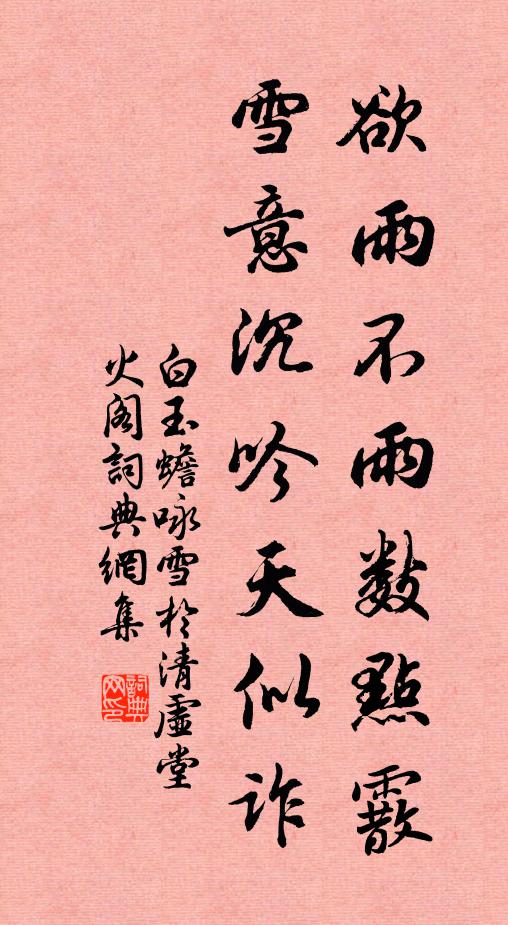 欲雨不雨數點霰
雪意沉吟天似詐
白玉蟾咏雪於清虛堂
火閣詞典網集
詞典网印